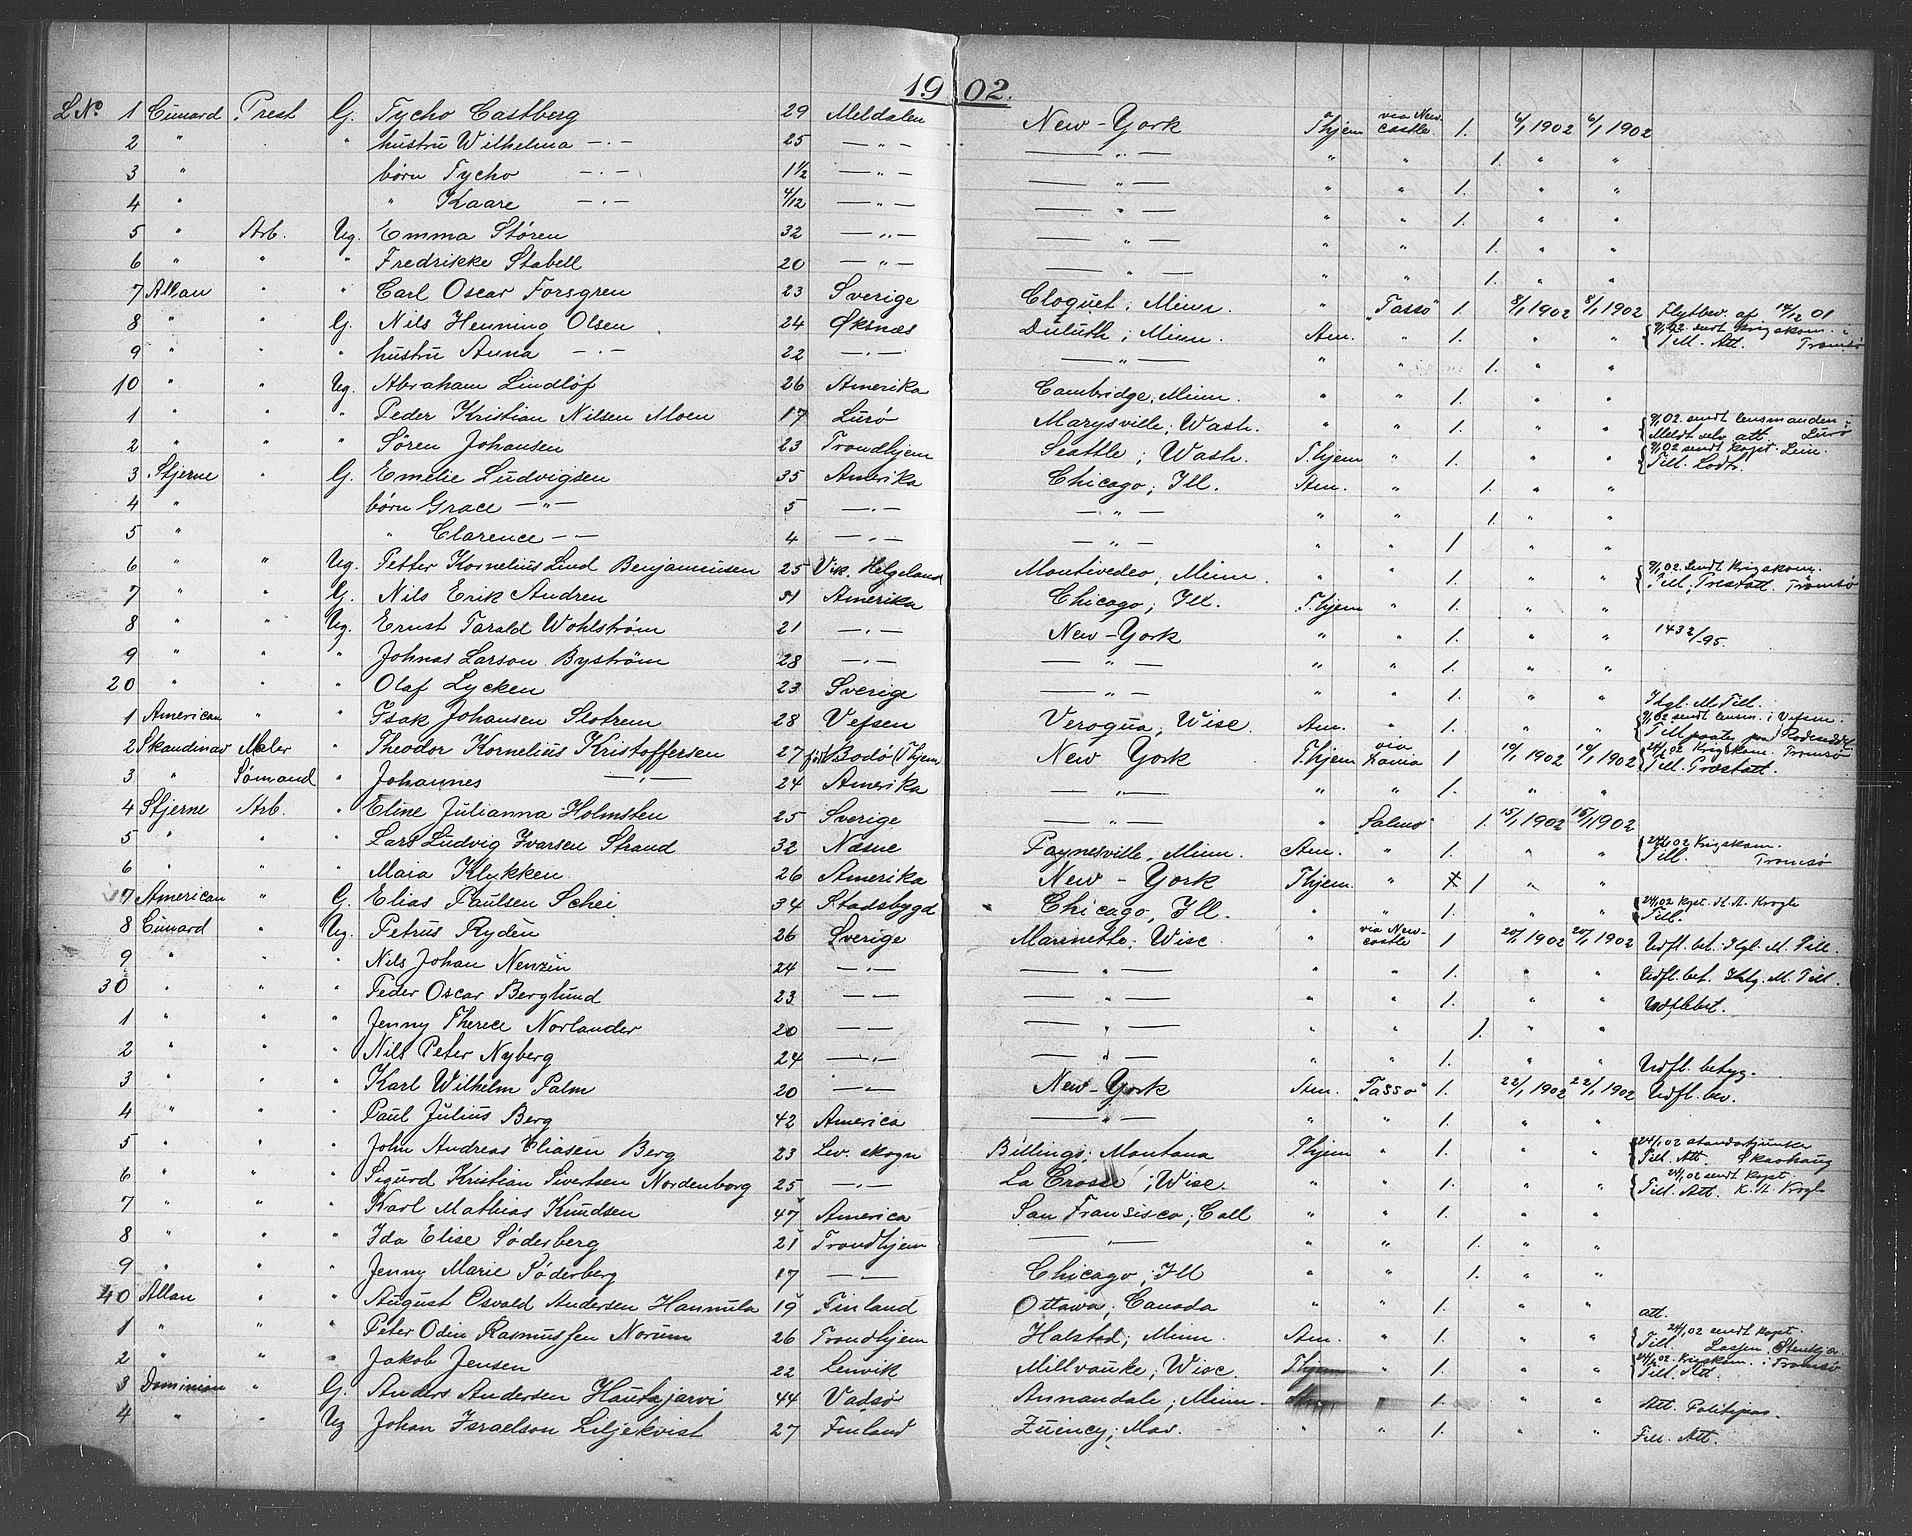 1902.
L No. 1 Cunard Prest G. Tycho Castberg 29 Meldalen New-York Thjem via New-castle 1. 6/1 1902 6/1 1902
2 " " hustru Wilhelmina -"- 25 -"- -"- " " 1. " "
3 " børn Tycho -"- 1 1/2 -"- -"- " " 1. " "
4 " " Kaare -"- 4/12 -"- -"- " " 1. " "
5 " Arb. Ug. Emma Støren 32 -"- -"- " " 1. " "
6 " " " Fredrikke Stabell 20 -"- -"- " " 1. " "
7 Allan " " Carl Oscar Forsgren 23 Sverige Cloquet; Minn. " "Tasso" 1. 8/1 1902 8/1 1902 Flytbev. af 14/12 01
8 " " G. Nils Henning Olsen 24 Øksnæs Duluth; Minn. Am. " 1. " " 9/1 02 sendt Krigskom. i Tromsø Till. Att.
9 " " " hustru Anna -"- 22 -"- -"- " " 1. " "
10 " " Ug. Abraham Lindlöf 26 Amerika Cambridge, Minn. " " 1. " "
1 " " " Peder Kristian Nilsen Moen 17 Lurø Marysville; Wash. " " 1. " " 9/1 02 sendt lensmanden i Lurø Meldt att.
2 " " " Sören Johansen 23 Trondhjem Seattle; Wash. Thjem " 1. " " 9/1 02 sendt kapt. Lein. Till.
3 Stjerne " G. Emelie Ludvigsen 35 Amerika Chicago; Ill. Am. " 1. " "
4 " børn Grace -"- 5 -"- -"- " " 1. " "
5 " " Clarence -"- 4 -"- -"- " " 1 " "
6 " " Ug. Petter Kornelius Lind Benjaminsen 25 Vik. Helgeland Montivedeo, Minn. " " 1. " " 9/1 02 sendt Krigskom. Tromsø Till.
7 " " G. Nils Erik Andren 51 Amerika Chicago; Ill. Thjem " 1. " "
8 " " Ug. Ernst Tarald Wohlström 21 -"- New-York " " 1. " " 1432/95.
9 " " " Johnas Larson Byström 28 -"- -"- " " 1. " "
20 " " " Olaf Lycken 23 Sverige -"- " " 1. " " Kgl. M. Till.
1 American " " Isak Johansen Slotrem 28 Vefsen Veroqua, Wisc. Am. " 1. " " 9/1 02 sendt lensm. i Vefsen. Till
2 Skandinav Maler " Theodor Kornelius Kristoffersen 27 Bodø (Thjem New York Thjem via Xania 1 10/1 1902 10/1 1902 24/1 02 Krigskom. Tromsø Till.
3 " Sømand " Johannes -"- 24 Amerika -"- " " 1. " "
4 Stjerne Arb. " Eline Julianna Holmsten 25 Sverige -"- " "Salmo" 1. 15/1 1902 15/1 1902
5 " " " Lars Ludvig Ivarsen Strand 32 Næsne Paynesville, Minn. Am. " 1. " " 24/1 02 Krigskom. Tromsø Till.
6 " " " Maia Klykken 26 Amerika New-York Thjem. " 1 " "
7 American " G. Elias Paulsen Schei 34 Stadsbygd Chicago, Ill. " " 1. " " 24/1 02 Kapt. K. H. Krogh Till.
8 Cunard " Ug. Petrus Ryden 26 Sverige Marinette. Wisc " via New-castle 1 20/1 1902 20/1 1902 Udfl. bet. Kgl. M. Till.
9 " " " Nils Johan Nenzén 24 -"- -"- " " 1. " " Udfl. bet. Kgl. M. Till.
30 " " " Peder Oscar Berglund 23 -"- -"- " " 1. " " Udfl. bet.
1 " " " Jenny Therece Norlander 20 -"- -"- " " 1. " "
2 " " " Nils Peter Nyberg 24 -"- -"- " " 1. " " Udfl. betyg.
3 " " " Karl Wilhelm Palm 20 -"- New-York Am. "Tasso" 1. 22/1 1902 22/1 1902 Udfl. bev.
4 " " " Paul Julius Berg 42 America -"- " " 1. " "
5 " " " John Andreas Eliasen Berg 23 Lev. skogn Billings; Montana Thjem " 1. " " 24/1 02 Till. Att. Skarhaug
6 " " " Sigurd Kristian Sivertsen Nordenborg 25 -"- La Crosse; Wisc. " " 1. " " 24/1 02 sendt Kapt. K. H. Krogh Till. Att.
7 " " " Karl Mathias Knudsen 47 America San Fransisco; Call " " 1. " "
8 " " " Ida Elise Söderberg 21 Trondhjem -"- " " 1. " "
9 " " " Jenny Marie Söderberg 17 -"- Chicago; Ill " " 1. " "
40 Allan " " August Osvald Andersen Hannula 19 Finland Ottawa; Canada " " 1. " " att.
1 " " " Peter Odin Rasmussen Norum 26 Trondhjem Halstad; Minn. Am. " 1. " " 24/1 02 sendt kapt. Till. Stenkjær
2 " " " Jakob Jensen 22 Lenvik Millvauke; Wisc. Thjem " 1. " " 24/1 02 Krigskom. i Tromsø Till. Att.
3 Dominion " G. Anders Andersen Hautajarvi 44 Vadsø Annandale; Minn. " 1. " " Att. Politipas.
4 " " Ug Johan Israelson Liljekvist 27 Finland Zuency; Mas. " " 1. " " Till. Att.